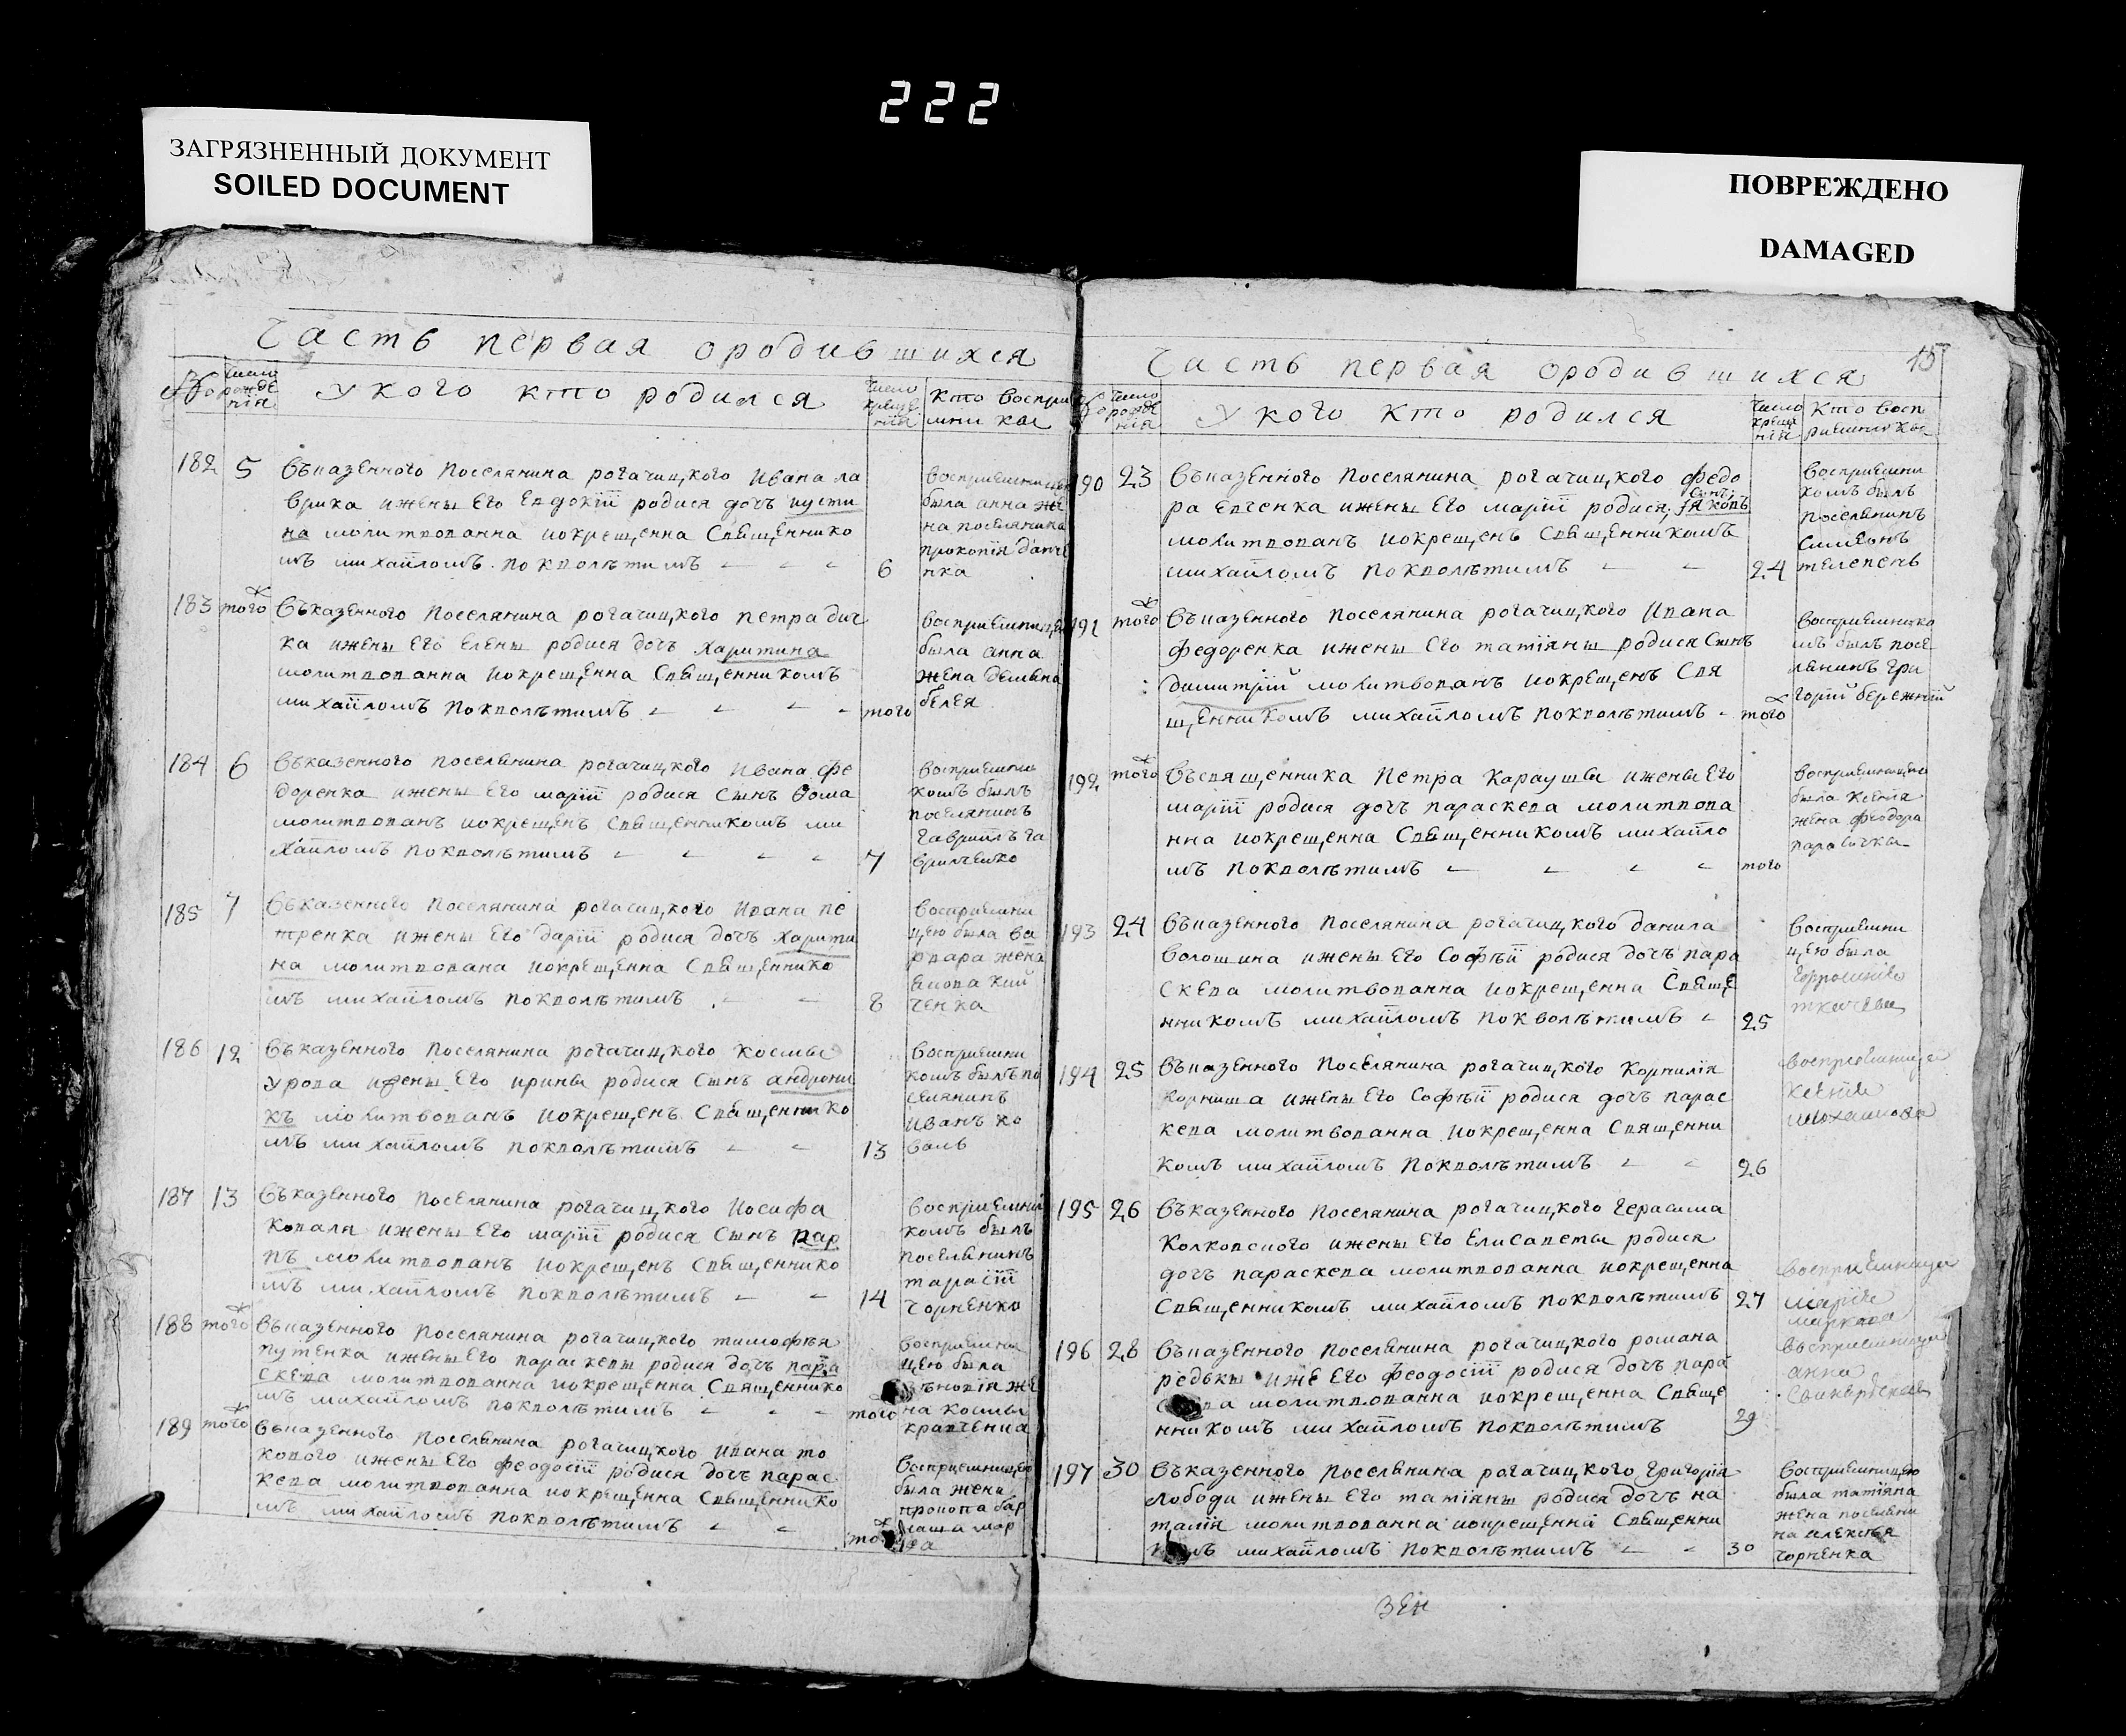 222
ЗАГРЯЗНЕННЫЙ ДОКУМЕНТ
SOILED DOCUMENT
ПОВРЕЖДЕНО
DAMAGED
Часть первая ородившихся
число рождения
У кого кто родился
число крещения
кто восприемники
182
5
Въказенного поселянина рогачицкого Ивана ла
врика ижены Его Евдокїи родися дочь иусти
на молитвованна июкрещенна Священнико
мъ михаиломъ покволѣтимъ
6
восприемницею
была анна же
на поселянина
прокопїя
183
того
Въказенного поселянина рогачицкого петра дич
ка ижены Его Елены родися дочь Харитина
молитвованна иокрещенна Священникомъ
михаиломъ покволѣтимъ
того
была анна
жена демяна
белея
184
6
Въказенного поселянина рогачицкого Ивана фе
доренка ижены Его марїи родися Сынъ Ѳома
молитвованъ иокрещенъ Священникомъ ми
хаиломъ покволѣтимъ
7
восприемни
комъ былъ
поселянинъ
гавриилъ га
вриленко
185
7
Въказенного поселянина рогачицкого Ивана пе
тренка ижены Его дарїи родися дочь Харити
на молитвована иокрещенна Священнико
мъ михаиломъ покволѣтимъ
8
восприемни
цею была ва
рвара жена
ченка
186
12
Въказенного поселянина рогачицкого космы
урода ижены Его ирины родися Сынъ андрони
къ молитвованъ иокрещенъ Священнико
мъ михаиломъ покволѣтимъ
13
восприемни
комъ былъ по
селянинъ
Иванъ ко
валь
187
13
Въказенного поселянина рогачицкого Иосифа
коваля ижены Его марїи родися Сынъ кар
пъ молитвованъ иокрещенъ Священнико
мъ михаиломъ покволѣтимъ
14
восприемни
комъ былъ
поселянинъ
тарасїй
Чорненко
188
того
Въказенного поселянина рогачицкого тимофѣя
путенка ижены Его параскевы родися дочь пара
скева молитвованна иокрещенна Священнико
мъ михаиломъ покволѣтимъ
того
восприемни
цею была
же
на космы
кравченка
189
того
Въказенного поселянина рогачицкого Ивана то
кового ижены Его феодосїи родися дочь парас
кева молитвованна иокрещенна Священнико
мъ михаиломъ покволѣтимъ
восприемницею
была жена
прокопа
Часть первая ородившихся
15
число рождения
У кого кто родился
число крещения
кто восприемники
190
23
Въказенного поселянина рогачицкого федо
ра Евченка ижены Его марїи родися сынъ Яковъ
молитвованъ иокрещенъ Священникомъ
михаиломъ покволѣтимъ
24
восприемни
комъ былъ
поселянинъ
Симеонъ
телепень
191
того
Въказенного поселянина рогачицкого Ивана
федоренка ижены Его татїяны родися Сынъ
димитрїй молитвованъ иокрещенъ Свя
щенникомъ михаиломъ покволѣтимъ
того
восприемнико
мъ былъ посе
лянинъ гри
горїй бережнїй
192
того
Въсвященника Петра Караушы ижены Его
марїи родися дочь параскева молитвова
нна иокрещенна Священникомъ михаило
мъ покволѣтимъ
того
восприемницею
была ксенїя
жена феодора
193
24
Въказенного поселянина рогачицкого данила
волошина ижены Его Софѣи родися дочь пара
скева молитвованна иокрещенна Свяще
нникомъ михаиломъ покволѣтимъ
25
восприемни
цею была
194
25
Въказенного поселянина рогачицкого Корнилїя
корниша ижены Его Софѣи родися дочь парас
кева молитвованна иокрещенна Священни
комъ михаиломъ покволѣтимъ
26
восприемница
195
26
Въказенного поселянина рогачицкого Герасима
Колковского ижены Его Елисаветы родися
дочь параскева молитвованна иокрещенна
Священникомъ михаиломъ покволѣтимъ
27
восприемница
марїя
196
28
Въказенного поселянина рогачицкого романа
редьки иже Его феодосїи родися дочь пара
молитвованна иокрещенна Свяще
нникомъ михаиломъ покволѣтимъ
29
восприемница
анна
197
30
Въказенного поселянина рогачицкого григорїя
лободы ижены Его татїяны родися дочь на
талїя молитвованна иокрещенна Священни
михаиломъ покволѣтимъ
30
восприемницею
была татїяна
жена поселяни
на алексѣя
чорненка